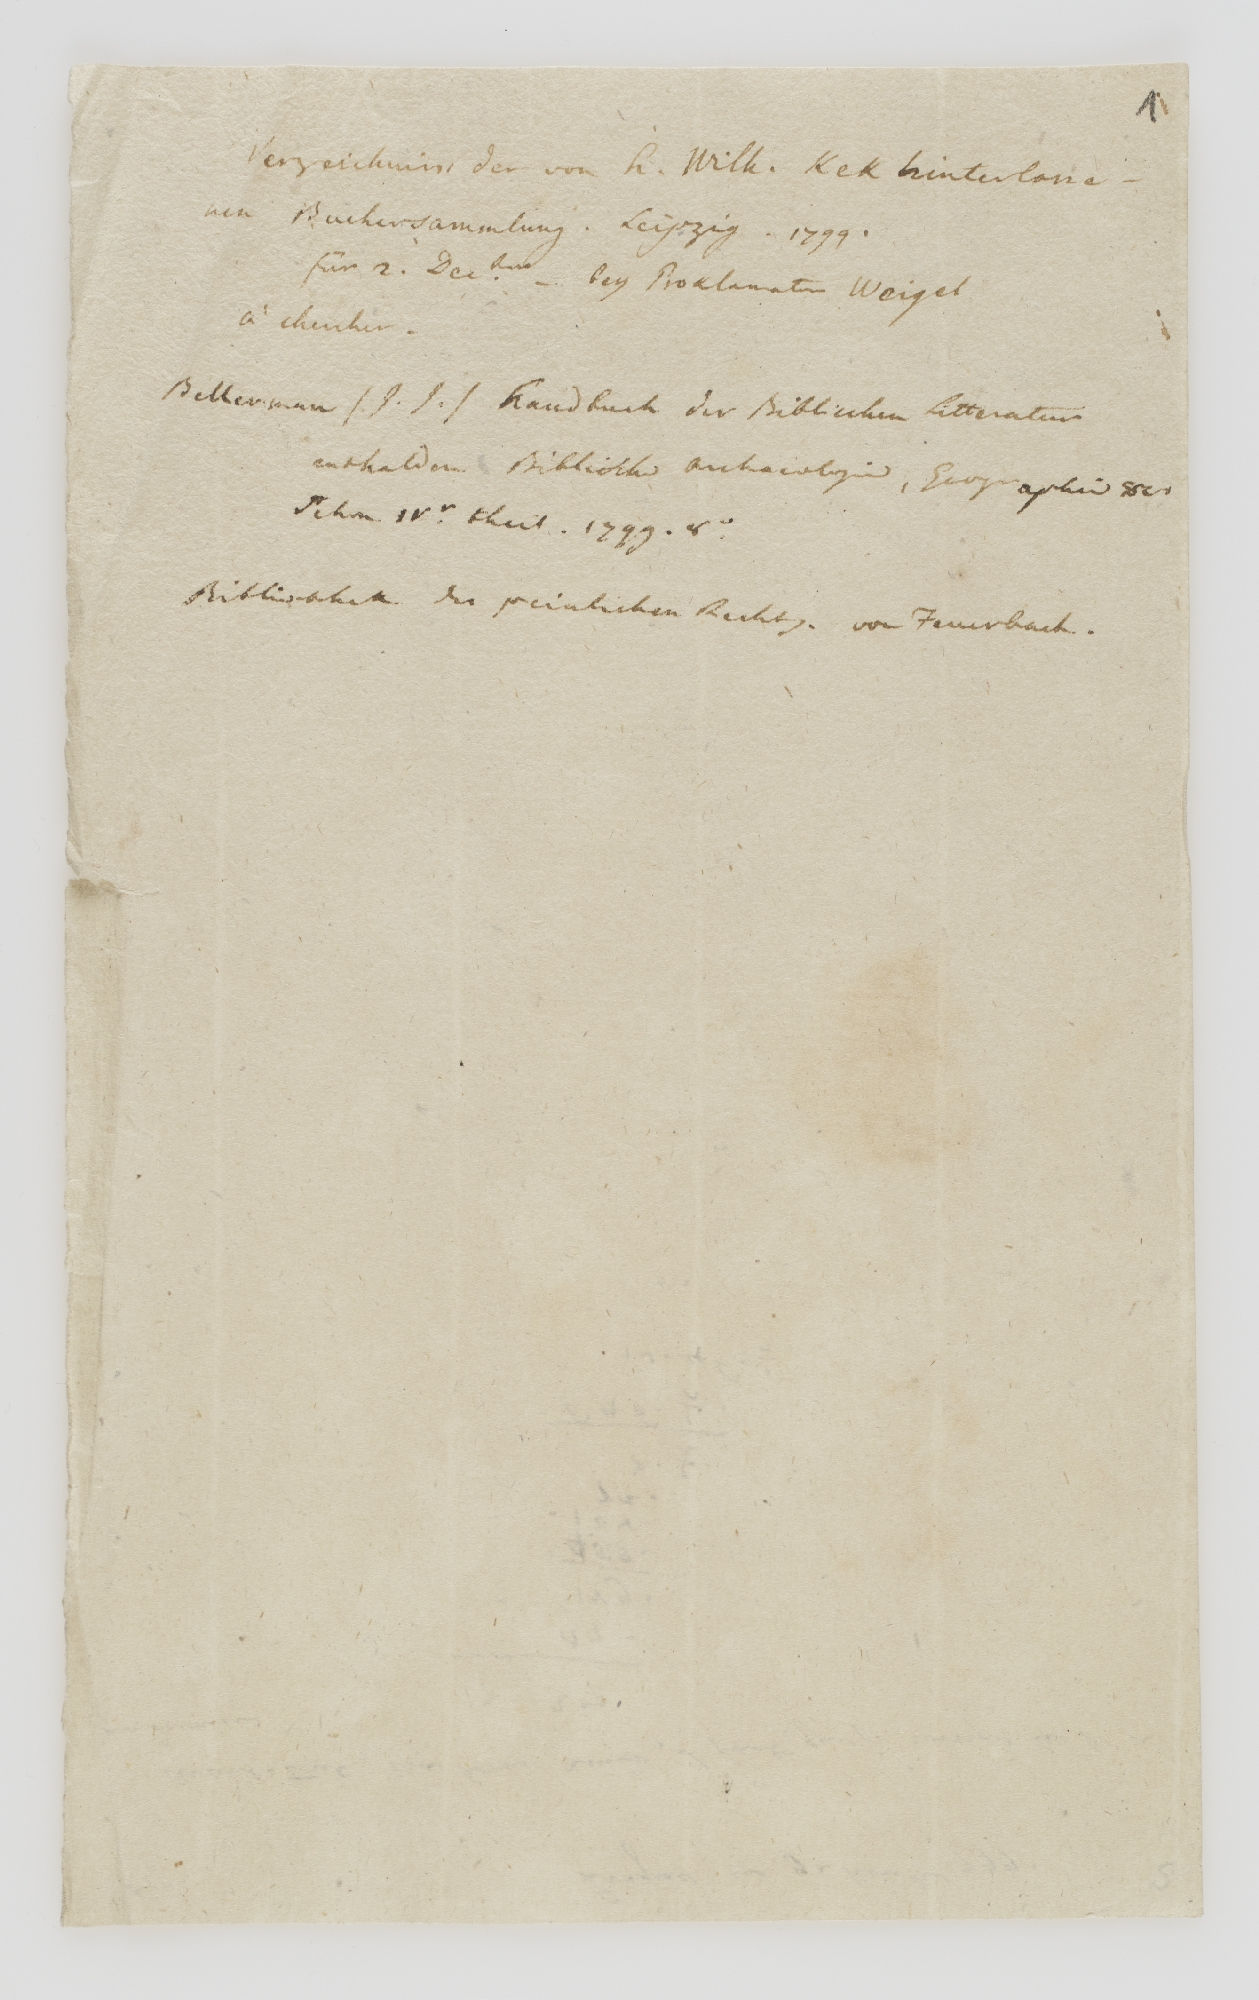 1
Verzeichniss der von H. Wilh. Kek hinterlasse-
nen Buchersammlung. Leipzig. 1799.
für 2. Dec.bre – bey Proklamator Weigel
à chercher.
Bellerman (J. J.) Handbuch der Biblischen Litteratur
enthaldem Biblische Archaeologie, Geographie &c.
IVr. theil. 1799. 8°.
Bibliothek des peinlichen Rechts. von Feuerbach.